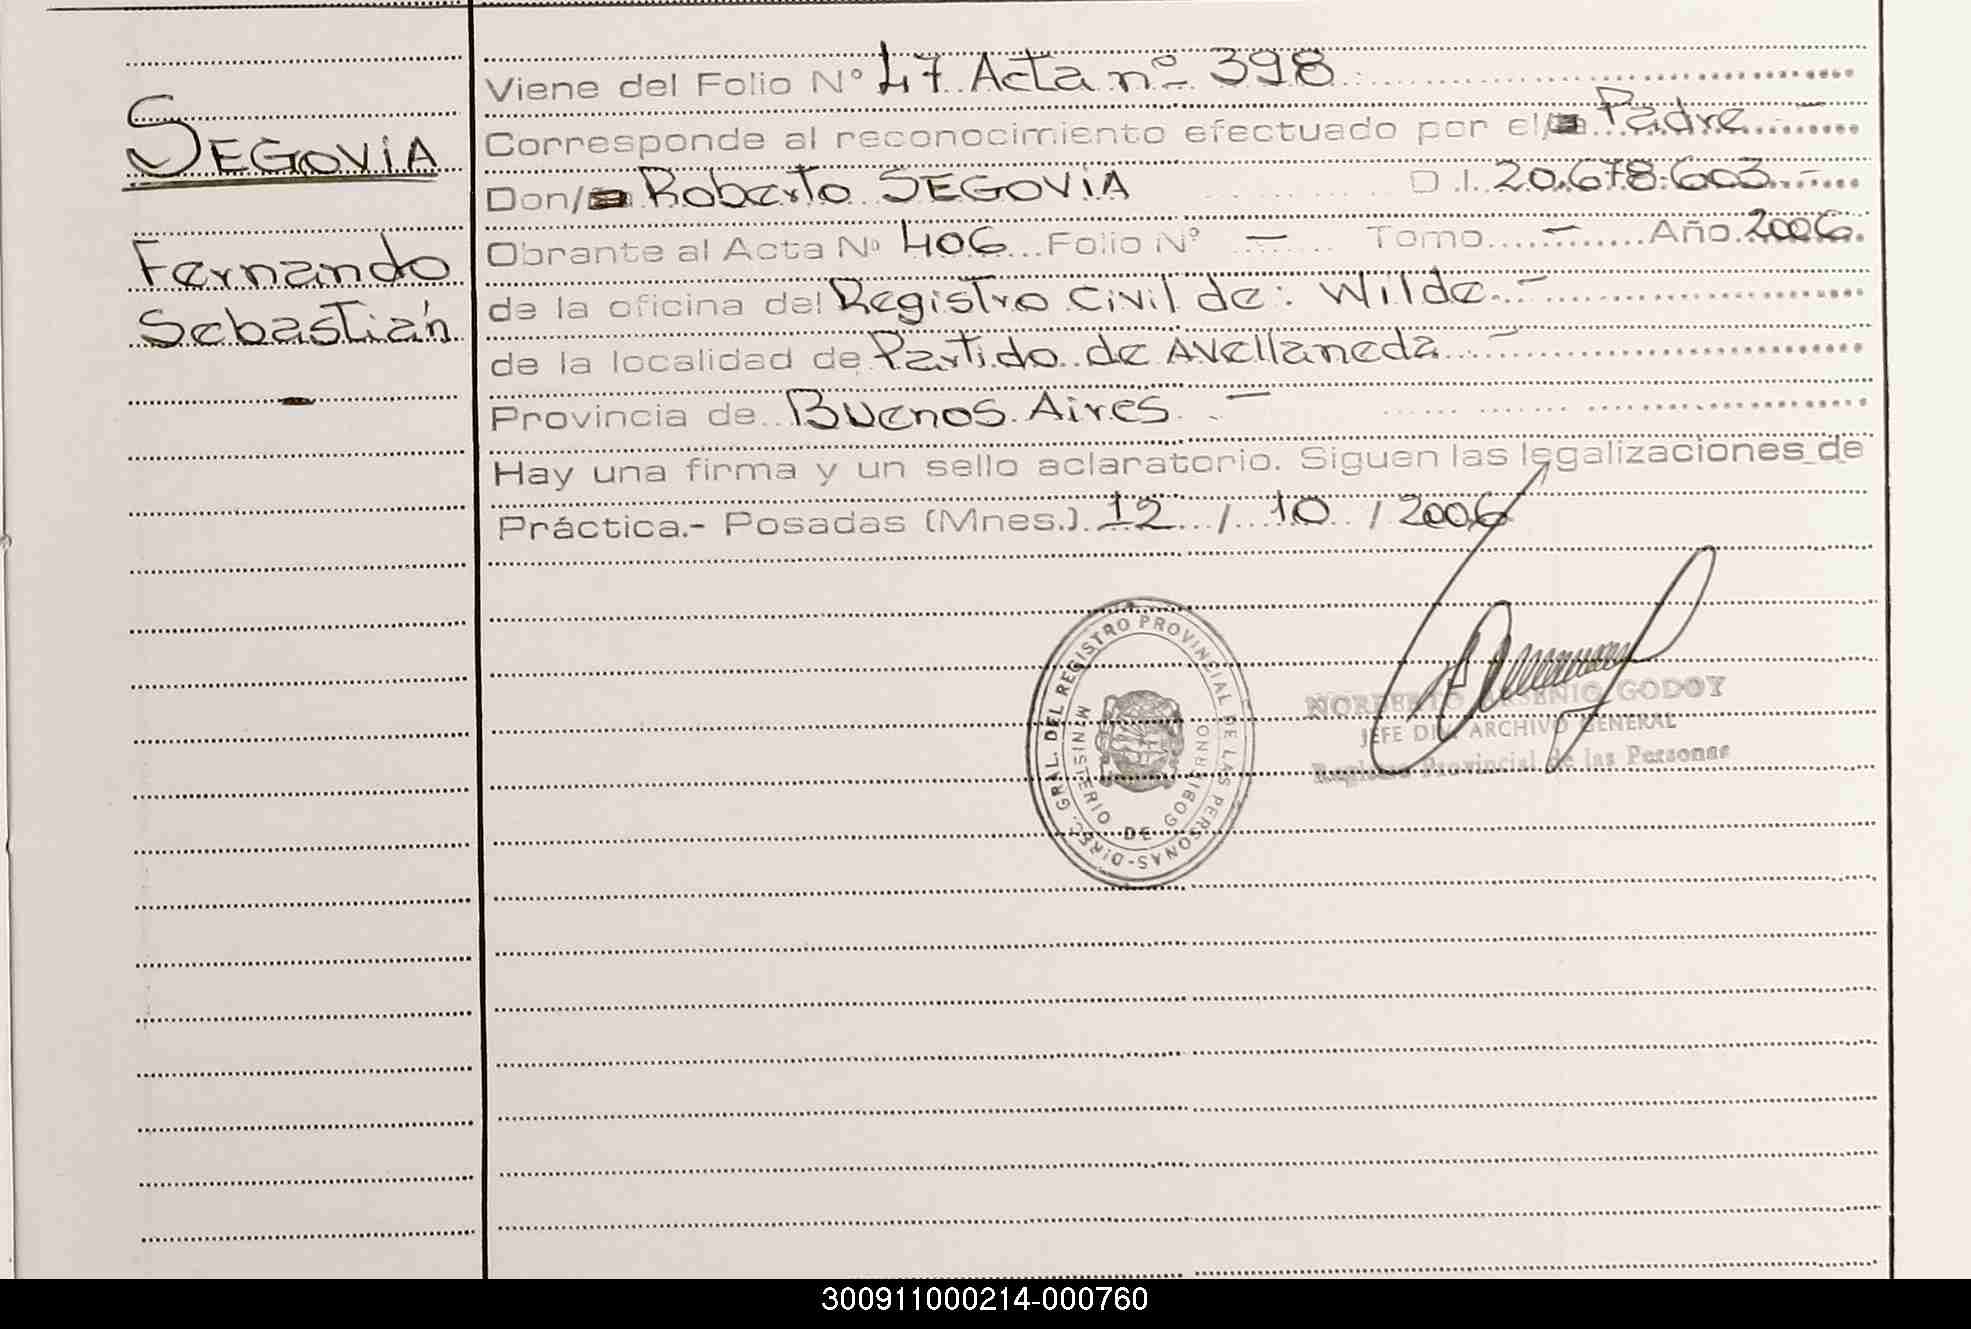 SEGOVIA
Fernando
Sebastián
Viene del Folio Nº 47 Acta nº 398
Corresponde al reconocimiento efectuado por el/ Padre
Don/ Roberto SEGOVIA D.I. 20.678.603
Obrante al Acta Nº 406 Folio Nº — Tomo — Año 2006
de la oficina del Registro Civil de: Wilde
de la localidad de Partido de Avellaneda
Provincia de Buenos Aires
Hay una firma y un sello aclaratorio. Siguen las legalizaciones de
Práctica.- Posadas (Mnes.) 12 / 10 / 2006
DIREC. GRAL. DEL REGISTRO PROVINCIAL DE LAS PERSONAS-
MINISTERIO DE GOBIERNO
NORBERTO ARSENIO GODOY
JEFE DIV. ARCHIVO GENERAL
Registro Provincial de las Personas
300911000214-000760